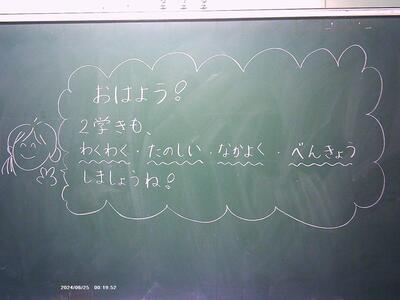 おはよう!
2学きも、
わくわく・たのしい・なかよく・べんきょう
しましょうね!
2024/06/25 00:19:52